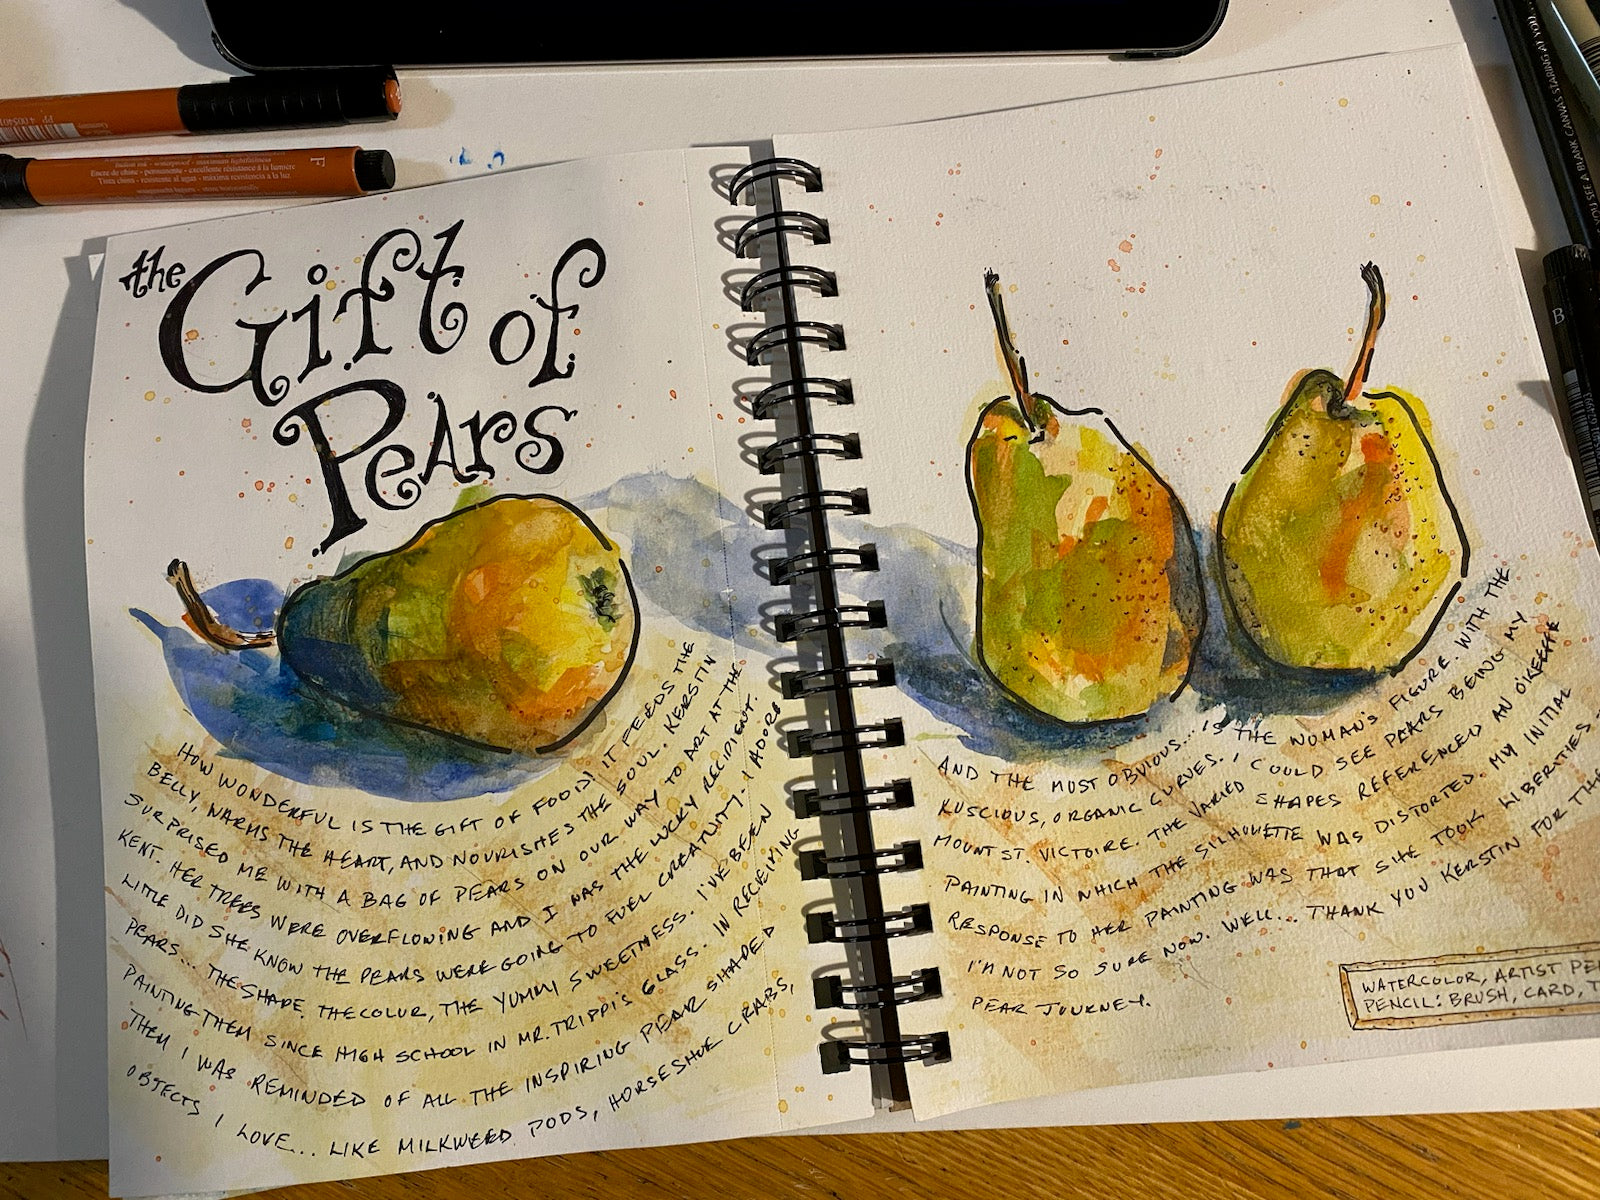 the Gift of
Pears
HOW WONDERFUL IS THE GIFT OF FOOD! IT FEEDS THE
BELLY, WARMS THE HEART, AND NOURISHES THE SOUL. KERSTIN
SURPRISED ME WITH A BAG OF PEARS ON OUR WAY TO ART AT THE
KENT. HER TREES WERE OVERFLOWING AND I WAS THE LUCKY RECIPIENT.
LITTLE DID SHE KNOW THE PEARS WERE GOING TO FUEL CREATIVITY. I ADORE
PEARS... THE SHAPE, THE COLOR, THE YUMMY SWEETNESS. I'VE BEEN
PAINTING THEM SINCE HIGH SCHOOL IN MR. TRIPPI'S CLASS. IN RECEIVING
THEM I WAS REMINDED OF ALL THE INSPIRING PEAR SHAPED
OBJECTS I LOVE... LIKE MILKWEED PODS, HORSESHOE CRABS,
AND THE MOST OBVIOUS... IS THE WOMAN'S FIGURE. WITH THE
LUSCIOUS, ORGANIC CURVES. I COULD SEE PEARS BEING MY
MOUNT ST. VICTOIRE. THE VARIED SHAPES REFERENCED AN O'KEEFFE
PAINTING IN WHICH THE SILHOUETTE WAS DISTORTED. MY INITIAL
RESPONSE TO HER PAINTING WAS THAT SHE TOOK LIBERTIES -
I'M NOT SO SURE NOW. WELL... THANK YOU KERSTIN FOR THE
PEAR JOURNEY.
WATERCOLOR, ARTIST PE
PENCIL: BRUSH, CARD, T
PP 4 005401
F
India ink - waterproof - maximum lightfastness
Encre de chine - permanente - excellente résistance à la lumière
Tinta china - resistente al agua - máxima resistencia a la luz
YOU SEE A BLANK CANVAS STARING AT YOU
B